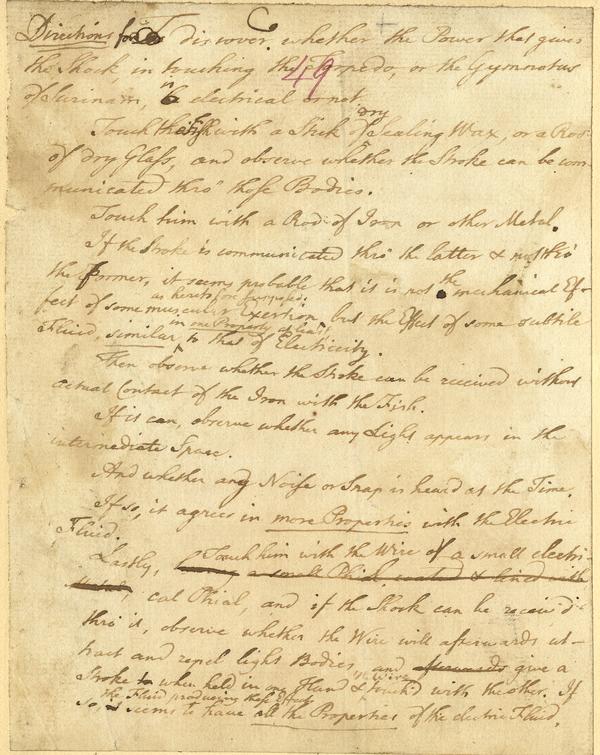 Directions to discover whether the Power that gives
the Shock in touching the Torpedo, or the Gymnotus
49
of Surinam, be electrical or not.
dry
Touch the Fish with a Stick of Sealing Wax, or a Rod
of dry Glass, and observe whether the Stroke can be com-
municated thro' those Bodies.
Touch him with a Rod of Iron or other Metal.
If the Stroke is communicated thro' the latter & not thro'
the former, it seems probable that it is not the mechanical Ef-
as heretofore supposed,
fect of some muscular Exertion, but the Effect of some subtile
in one Property at least
Fluid, similar to that of Electricity.
Then observe whether the Stroke can be received without
actual Contact of the Iron with the Fish.
If it can, observe whether any Light appears in the
intermediate Space.
And whether any Noise or Snap is heard at the Time.
If so, it agrees in more Properties with the Electric
Fluid.
Lastly, Touch him with the Wire of a small electri-
a small Phial coated & lined with
cal Phial, and if the Shock can be receiv'd
thro' it, observe whether the Wire will afterwards at-
tract and repel light Bodies, and afterwards give a
the Wire
Stroke when held in one Hand & touch'd with the other. If
the Fluid producing those Effects
so, seems to have all the Properties of the electric Fluid.